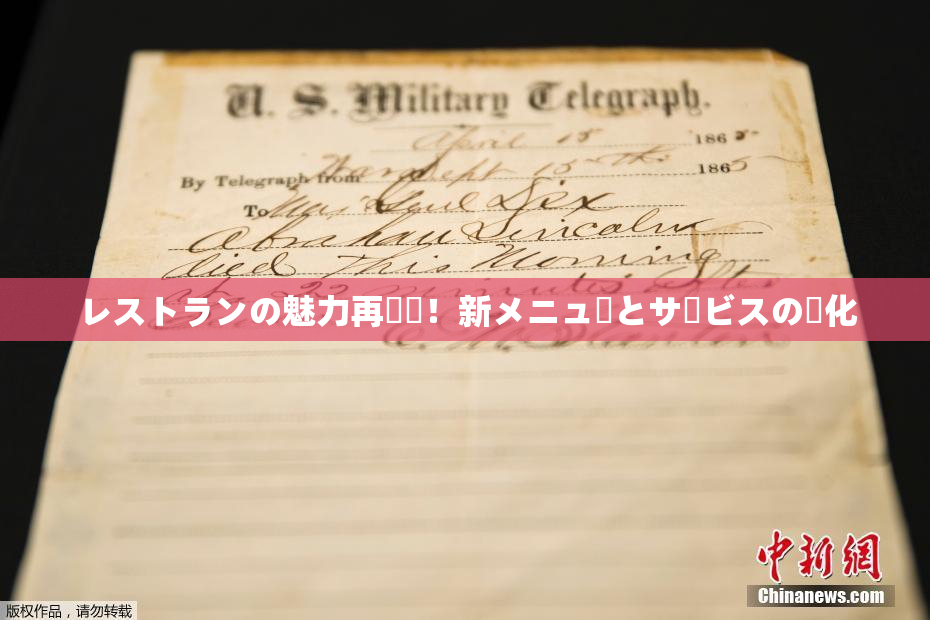 U. S. Military Telegraph.
April 15 1865
By Telegraph from War Dept 15th 1865
To Maj Genl Dix
Abraham Lincoln
died This Morning
at 22 minutes after
レストランの魅力再！新メニュとサビスの化
中新网
Chinanews.com
版权作品，请勿转载